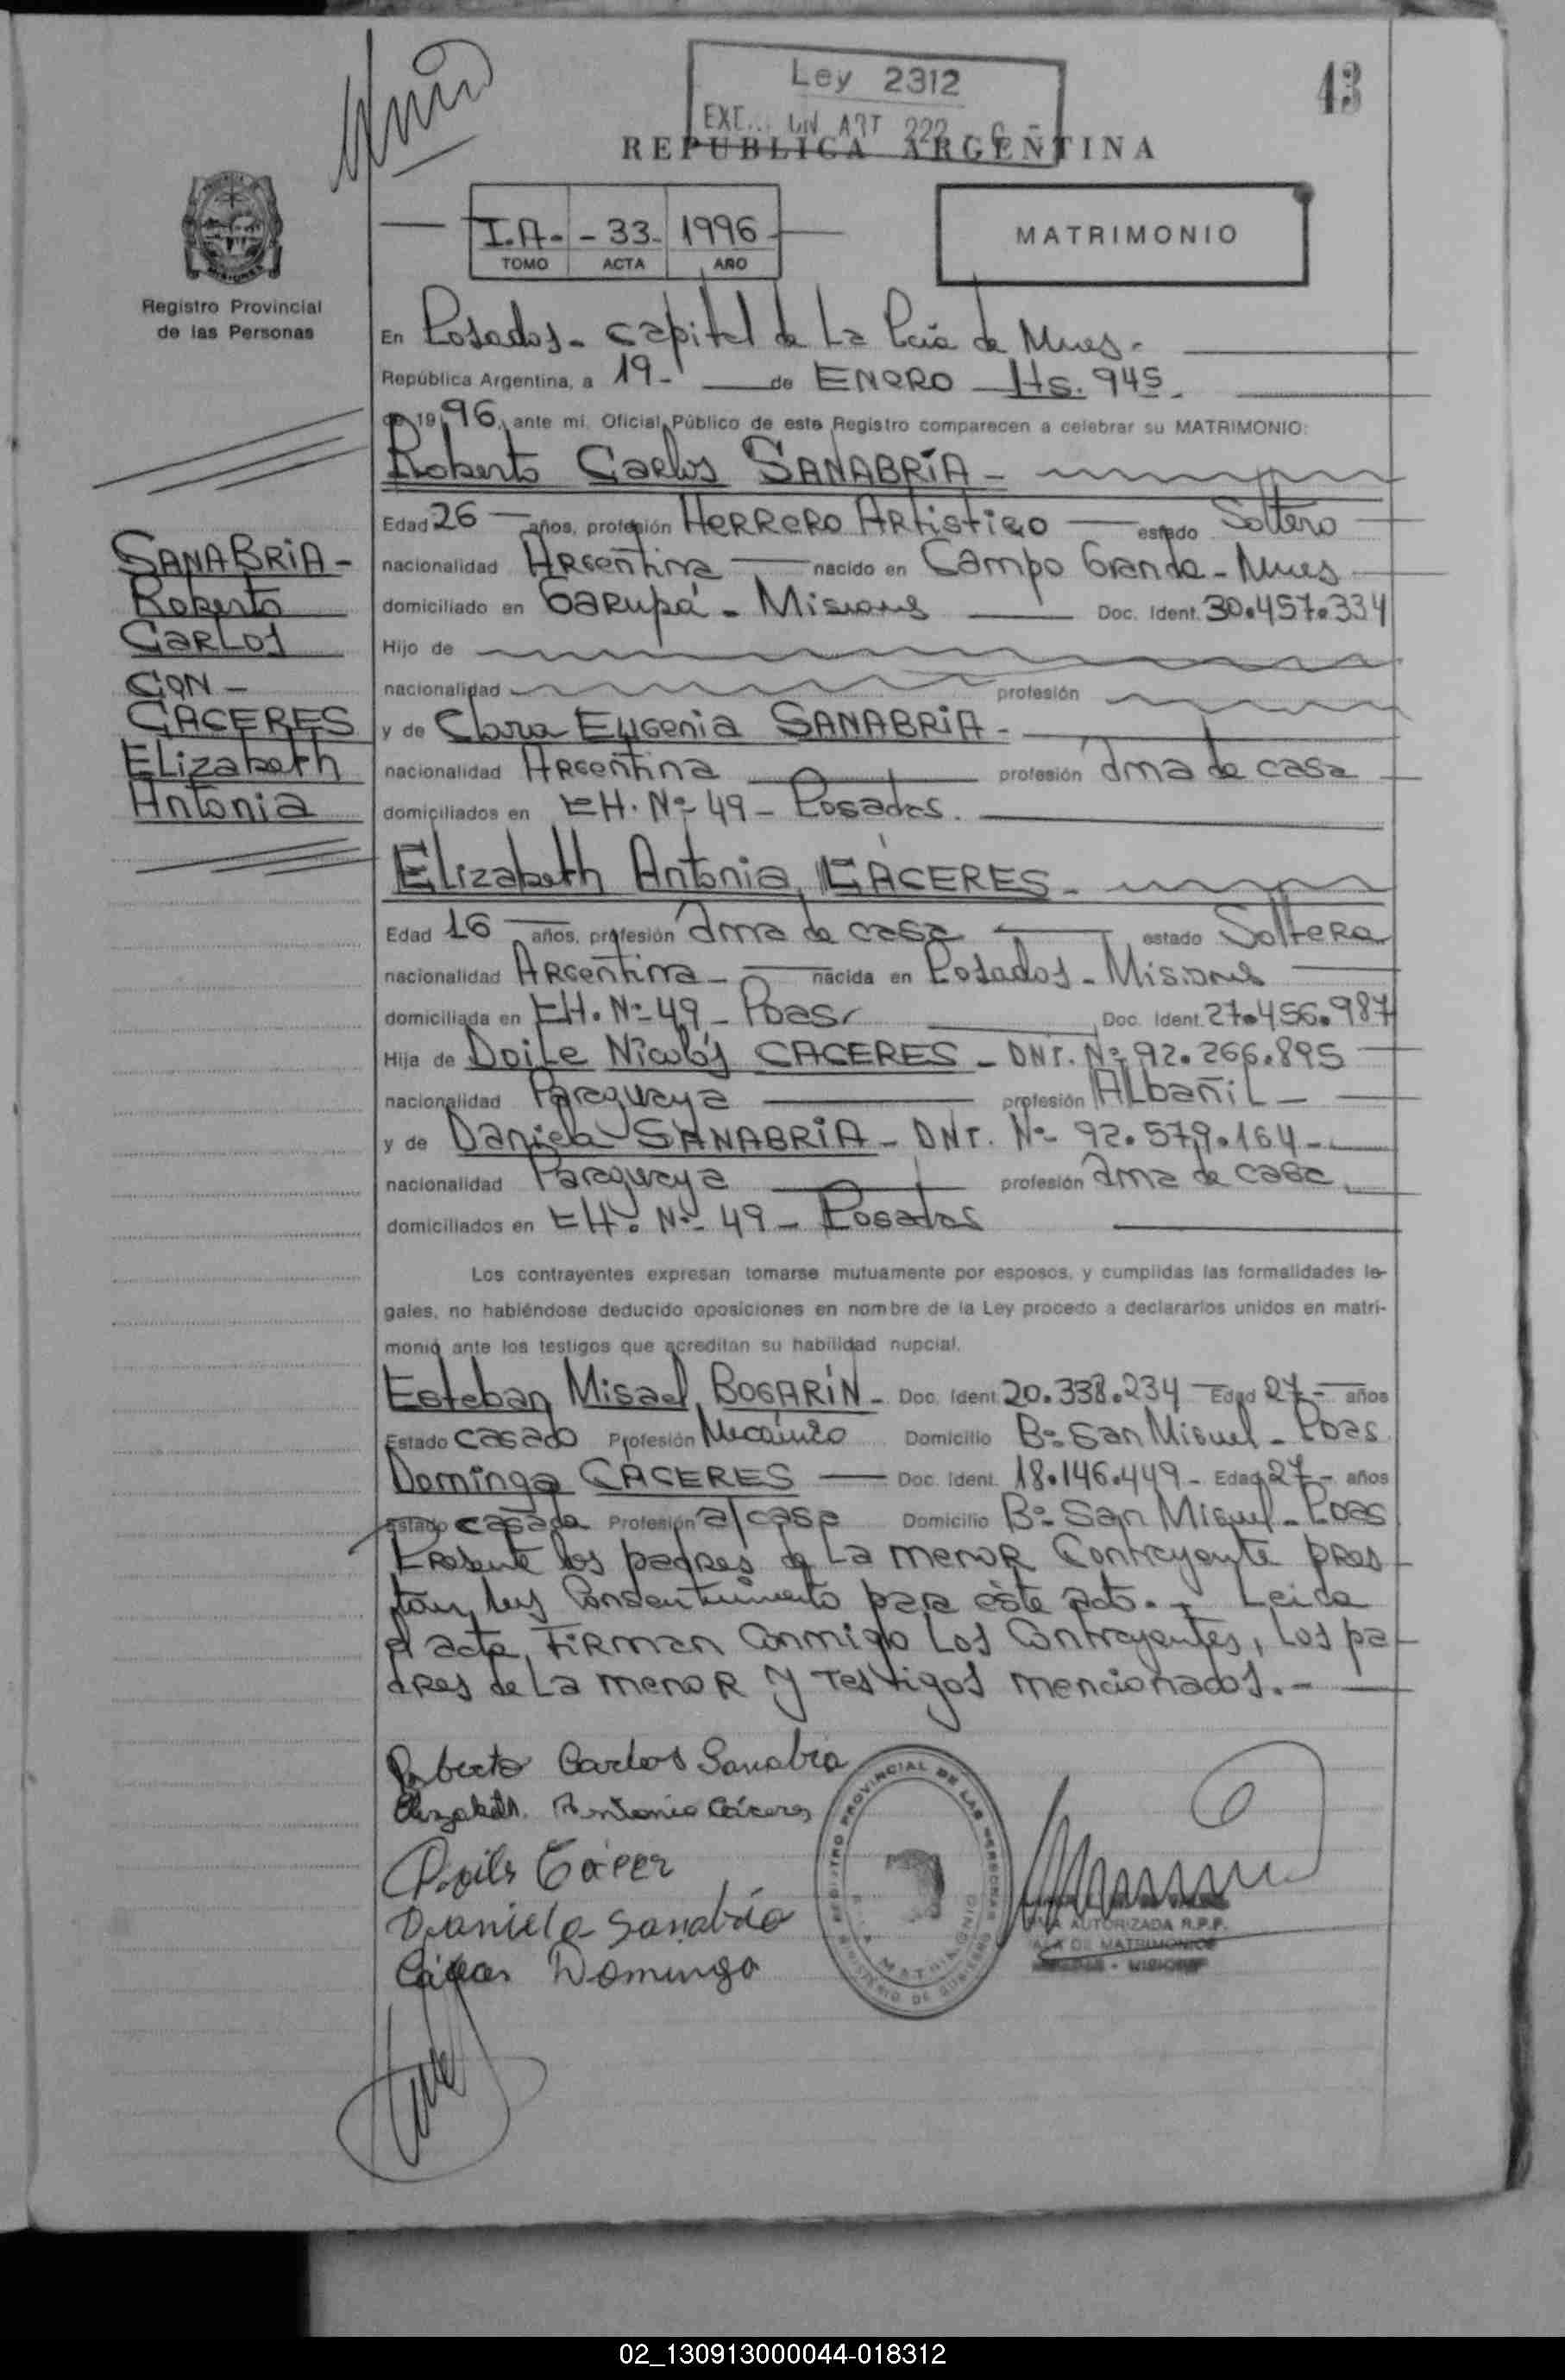 Ley 2312
43
EXE... EN ART 222
REPUBLICA ARGENTINA
I.A.- - 33- 1996-
TOMO ACTA AÑO
MATRIMONIO
Registro Provincial
de las Personas
En Posadas - Capital de La Pcia de Mnes-
República Argentina, a 19- de ENERO Hs. 945.
de 1996, ante mí, Oficial Público de este Registro comparecen a celebrar su MATRIMONIO:
Roberto Carlos SANABRIA -
Edad 26 años, profesión HERRERO ARtistico estado Soltero
nacionalidad ARgentina nacido en Campo Grande - Mnes
domiciliado en GARupá - Misiones Doc. Ident. 30.457.334
Hijo de
nacionalidad profesión
y de Clara Eugenia SANABRIA -
nacionalidad ARgentina profesión Ama de casa
domiciliados en CH. Nº 49 - Posadas.
SANABRIA -
Roberto
CARLOS
CON -
CACERES
Elizabeth
Antonia
Elizabeth Antonia CÁCERES -
Edad 16 años, profesión Ama de casa estado Soltera
nacionalidad ARgentina - nacida en Posadas - Misiones
domiciliada en CH. Nº 49 - Pdas. Doc. Ident. 27.456.987
Hija de Doile Nicolás CACERES - DNI. Nº 92.266.895
nacionalidad Paraguaya profesión ALbañiL -
y de Daniela SANABRIA - DNI. Nº 92.579.164 -
nacionalidad Paraguaya profesión Ama de casa
domiciliados en CH. Nº 49 - Posadas
Los contrayentes expresan tomarse mutuamente por esposos, y cumplidas las formalidades le-
gales, no habiéndose deducido oposiciones en nombre de la Ley procedo a declararlos unidos en matri-
monio ante los testigos que acreditan su habilidad nupcial.
Esteban Misael BOGARÍN - Doc. Ident. 20.338.234 Edad 27 - años
Estado casado Profesión Mecánico Domicilio Bº San Miguel - Pdas
Dominga CÁCERES Doc. Ident. 18.146.449 - Edad 27 - años
Estado casada Profesión a/casa Domicilio Bº San Miguel - Pdas
Presente los padres de La menor Contrayente pres
tan sus Consentimiento para este acto. - Leida
el acta, FiRman Conmigo Los Contrayentes, Los pa
dRes de La menoR y Testigos mencionados. -
Roberto Carlos Sanabria
Elizabeth Antonia Cáceres
Doile Cácer
Daniela Sanabria
Cáceres Dominga
REGISTRO PROVINCIAL DE LAS PERSONAS
MINISTERIO DE GOBIERNO
AUTORIZADA R.P.P.
DE MATRIMONIOS
MISIONES
02_130913000044-018312